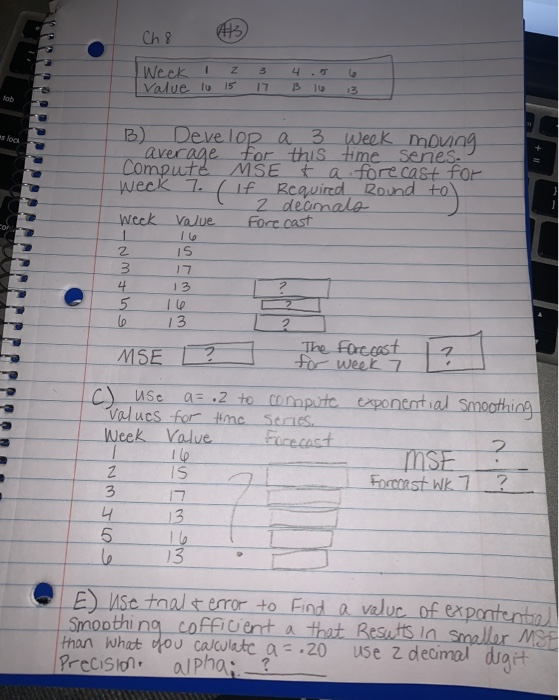 Ch 8 #3
Week 1 2 3 4 . 5 6
Value 16 15 17 13 16 13
B) Develop a 3 week moving
average for this time series.
Compute MSE & a forecast for
week 7. (If Required Round to)
2 decimals
Week Value Forecast
1 16
2 15
3 17
4 13 ?
5 16 ?
6 13 ?
MSE ? The Forecast ?
for week 7
C) use a = .2 to compute exponential smoothing
values for time series.
Week Value Forecast
1 16 MSE ?
2 15 Forecast Wk 7 ?
3 17
4 13 ?
5 16
6 13
E) Use trial & error to Find a value of expontential
Smoothing cofficient a that Results in smaller MSE
than what you calculate a = .20 use 2 decimal digit
Precision. alpha: ?
tab